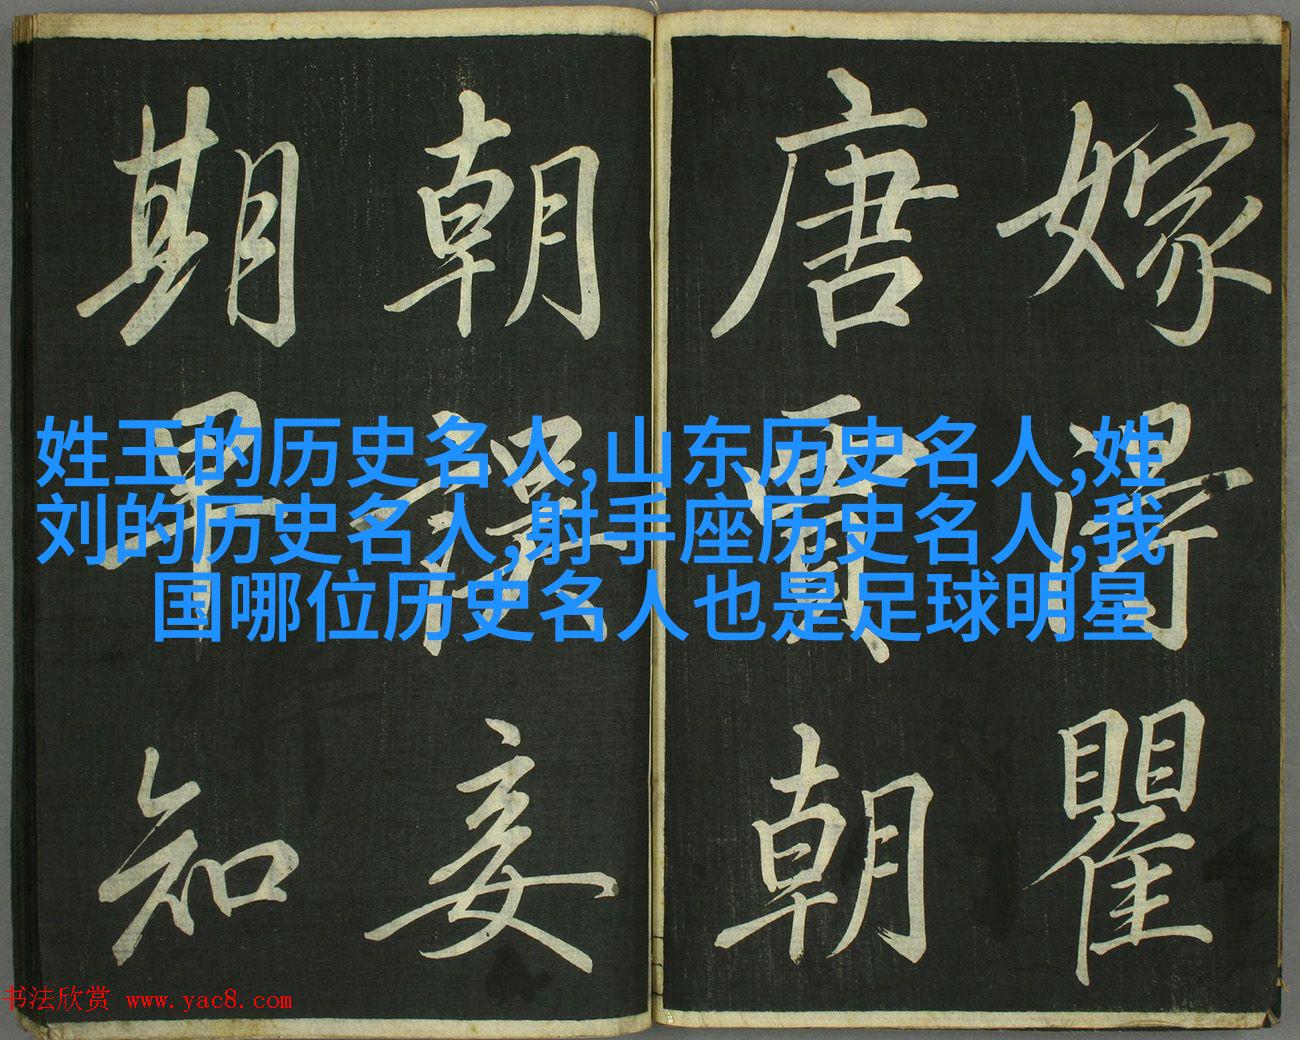 嫁得瞿
唐賈朝
朝誤妾
期早知
姓王的历史名人,山东历史名人,姓
刘的历史名人,射手座历史名人,我
国哪位历史名人也是足球明星
书法欣赏 www.yac8.com